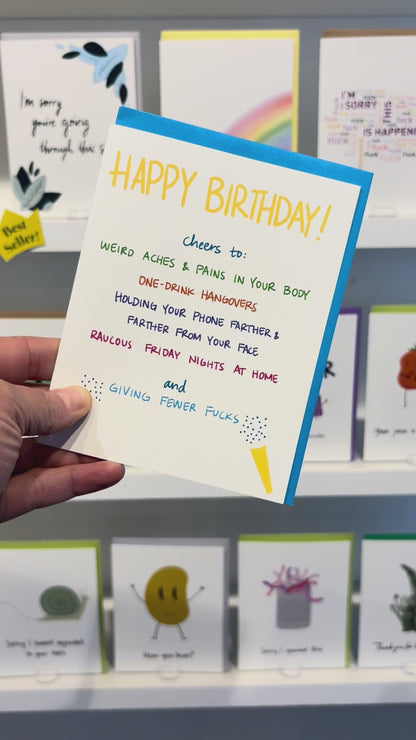 I'm sorry
you're going
through this
I'M
SORRY THIS
IS HAPPENING
Best
Seller!
HAPPY BIRTHDAY!
cheers to:
WEIRD ACHES & PAINS IN YOUR BODY
ONE-DRINK HANGOVERS
HOLDING YOUR PHONE FARTHER &
FARTHER FROM YOUR FACE
RAUCOUS FRIDAY NIGHTS AT HOME
and
GIVING FEWER FUCKS
Sorry I haven't responded
to your